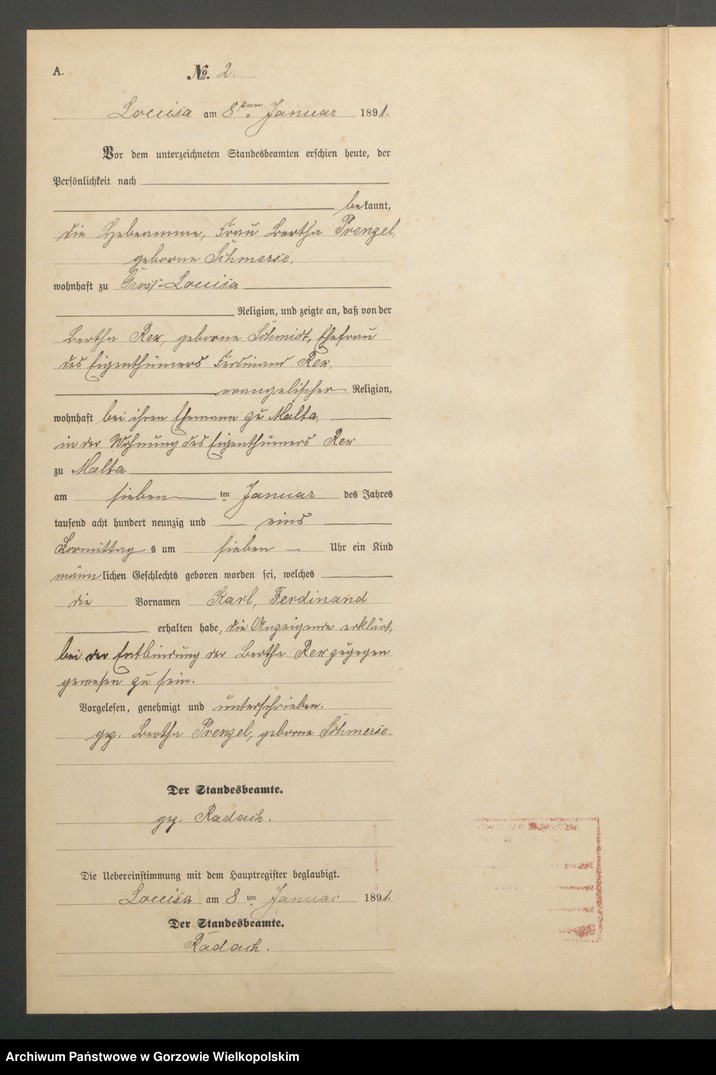 A.
No. 2.
Louisa am 8ten Januar 1891.
Vor dem unterzeichneten Standesbeamten erschien heute, der
Persönlichkeit nach
bekannt,
die Hebeamme, Frau Bertha Prenzel,
geborne Schmerse,
wohnhaft zu Gross-Louisa
Religion, und zeigte an, daß von der
Bertha Rex, geborne Schmidt, Ehefrau
des Eigenthümers Ferdinand Rex,
evangelischer Religion,
wohnhaft bei ihren Ehemann zu Malta,
in der Wohnung des Eigenthümers Rex
zu Malta
am sieben ten Januar des Jahres
tausend acht hundert neunzig und eins
Vormittag s um sieben Uhr ein Kind
männlichen Geschlechts geboren worden sei, welches
die Vornamen Karl, Ferdinand
erhalten habe, die Anzeigende erklärt,
bei der Entbindung der Bertha Rex zugegen
gewesen zu sein.
Vorgelesen, genehmigt und unterschrieben.
gez. Bertha Prenzel, geborne Schmerse.
Der Standesbeamte.
gez. Radach.
Die Uebereinstimmung mit dem Hauptregister beglaubigt.
Louisa am 8 ten Januar 1891.
Der Standesbeamte.
Radach.
Archiwum Państwowe w Gorzowie Wielkopolskim